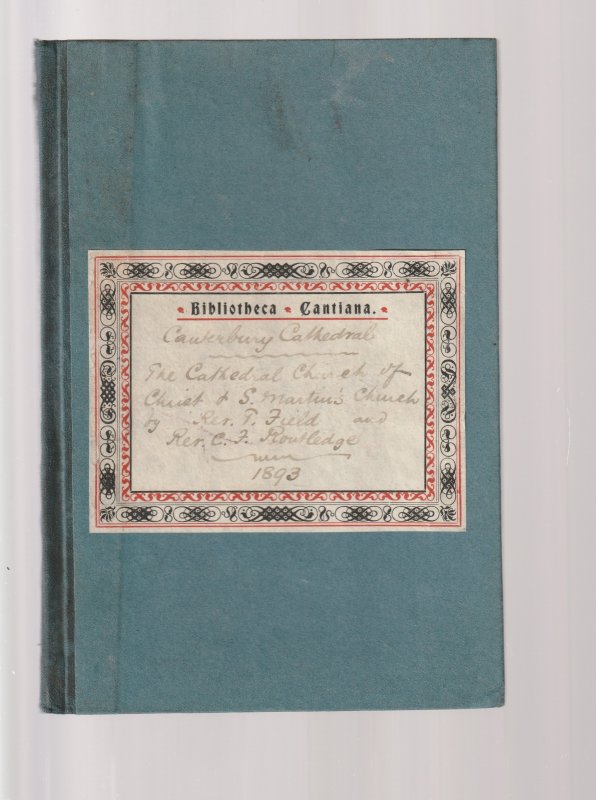 Bibliotheca Cantiana.
Canterbury Cathedral
The Cathedral Church of
Christ & S. Martin's Church
by Rev. T. Field and
Rev. C. F. Routledge
1893